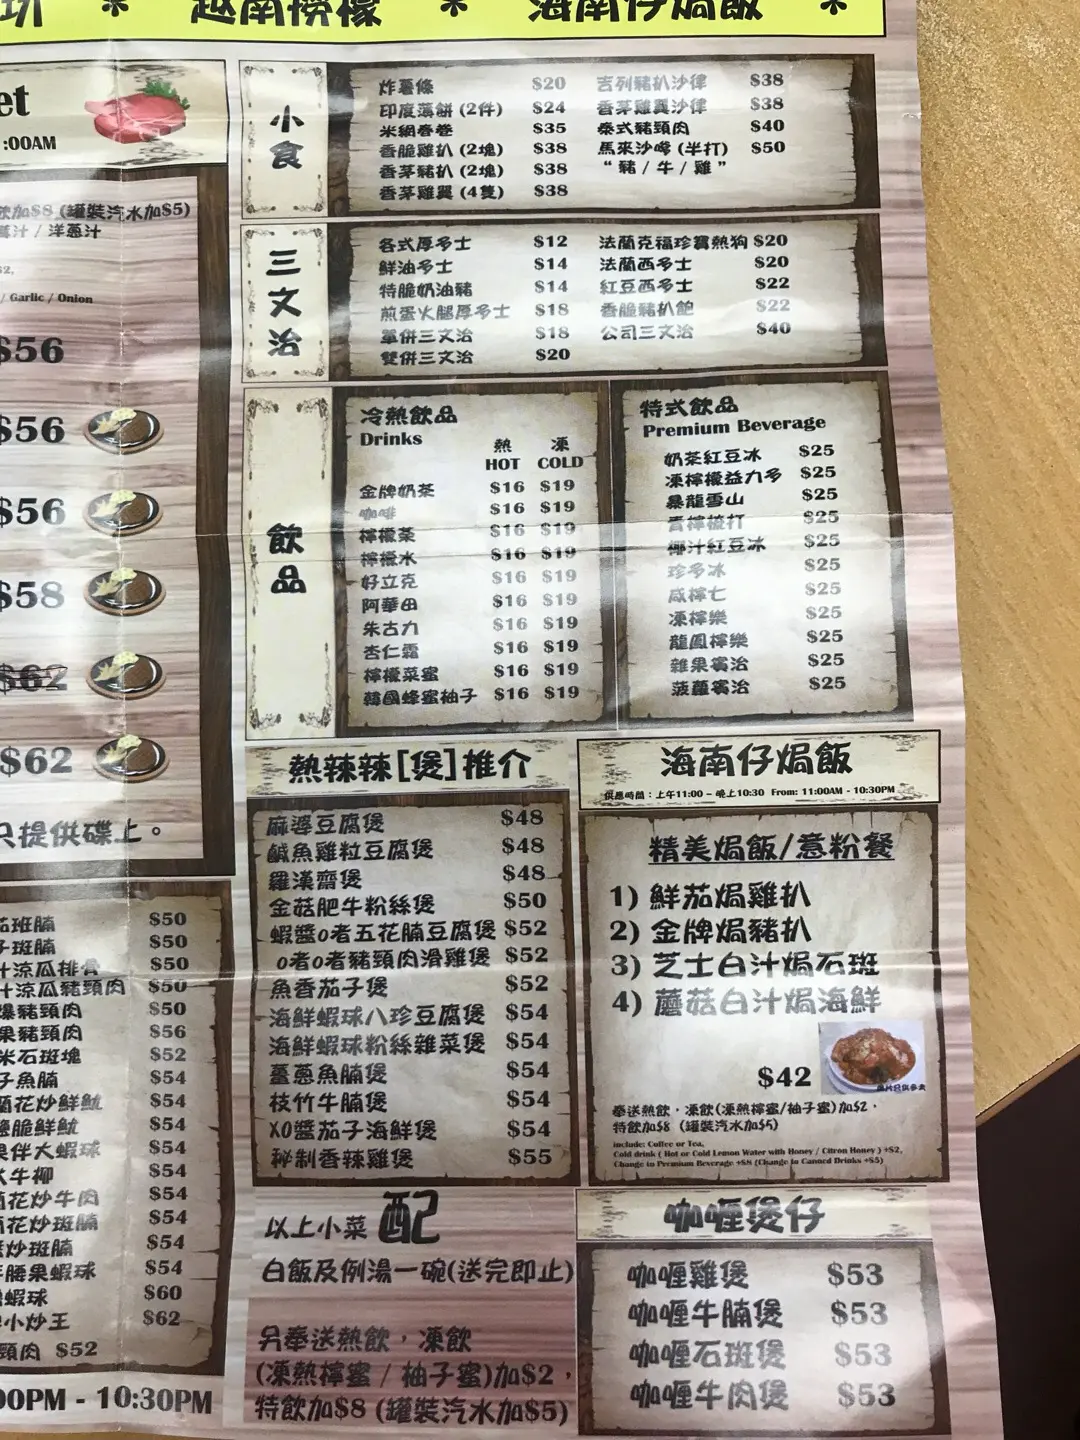 * 越南撈檬 * 海南仔焗飯 *
et
:00AM
飲加$8 (罐裝汽水加$5)
茸汁 / 洋蔥汁
/ Garlic / Onion
$56
$56
$56
$58
$62
$62
只提供碟上。
小食
炸薯條 $20 吉列豬扒沙律 $38
印度薄餅 (2件) $24 香茅雞翼沙律 $38
米網春卷 $35 泰式豬頸肉 $40
香脆雞扒 (2塊) $38 馬來沙嗲 (半打) $50
香茅豬扒 (2塊) $38 “ 豬 / 牛 / 雞 ”
香茅雞翼 (4隻) $38
三文治
各式厚多士 $12 法蘭克福珍寶熱狗 $20
鮮油多士 $14 法蘭西多士 $20
特脆奶油豬 $14 紅豆西多士 $22
煎蛋火腿厚多士 $18 香脆豬扒飽 $22
單併三文治 $18 公司三文治 $40
雙併三文治 $20
飲品
冷熱飲品
Drinks
熱 凍
HOT COLD
金牌奶茶 $16 $19
咖啡 $16 $19
檸檬茶 $16 $19
檸檬水 $16 $19
好立克 $16 $19
阿華田 $16 $19
朱古力 $16 $19
杏仁霜 $16 $19
檸檬菜蜜 $16 $19
韓國蜂蜜柚子 $16 $19
特式飲品
Premium Beverage
奶茶紅豆冰 $25
凍檸檬益力多 $25
暴龍雪山 $25
青檸梳打 $25
椰汁紅豆冰 $25
珍多冰 $25
咸檸七 $25
凍檸樂 $25
龍鳳檸樂 $25
雜果賓治 $25
菠蘿賓治 $25
熱辣辣[煲]推介
麻婆豆腐煲 $48
鹹魚雞粒豆腐煲 $48
羅漢齋煲 $48
金菇肥牛粉絲煲 $50
蝦醬o者五花腩豆腐煲 $52
o者o者豬頸肉滑雞煲 $52
魚香茄子煲 $52
海鮮蝦球八珍豆腐煲 $54
海鮮蝦球粉絲雜菜煲 $54
薑蔥魚腩煲 $54
枝竹牛腩煲 $54
XO醬茄子海鮮煲 $54
秘制香辣雞煲 $55
海南仔焗飯
供應時間：上午11:00 – 晚上10:30 From: 11:00AM - 10:30PM
精美焗飯/意粉餐
1) 鮮茄焗雞扒
2) 金牌焗豬扒
3) 芝士白汁焗石斑
4) 蘑菇白汁焗海鮮
$42
圖片只供參考
奉送熱飲，凍飲(凍熱檸蜜/柚子蜜)加$2，
特飲加$8 (罐裝汽水加$5)
include: Coffee or Tea,
Cold drink ( Hot or Cold Lemon Water with Honey / Citron Honey ) +$2,
Change to Premium Beverage +$8 (Change to Canned Drinks +$5)
茄班腩 $50
子斑腩 $50
汁涼瓜排骨 $50
汁涼瓜豬頸肉 $50
爆豬頸肉 $50
果豬頸肉 $56
米石斑塊 $52
子魚腩 $54
蘭花炒鮮魷 $54
鹽脆鮮魷 $54
果伴大蝦球 $54
牛柳 $54
花炒牛肉 $54
花炒斑腩 $54
炒斑腩 $54
腰果蝦球 $54
蝦球 $60
小炒王 $62
頸肉 $52
00PM - 10:30PM
以上小菜 配
白飯及例湯一碗(送完即止)
另奉送熱飲，凍飲
(凍熱檸蜜 / 柚子蜜)加$2，
特飲加$8 (罐裝汽水加$5)
咖喱煲仔
咖喱雞煲 $53
咖喱牛腩煲 $53
咖喱石斑煲 $53
咖喱牛肉煲 $53